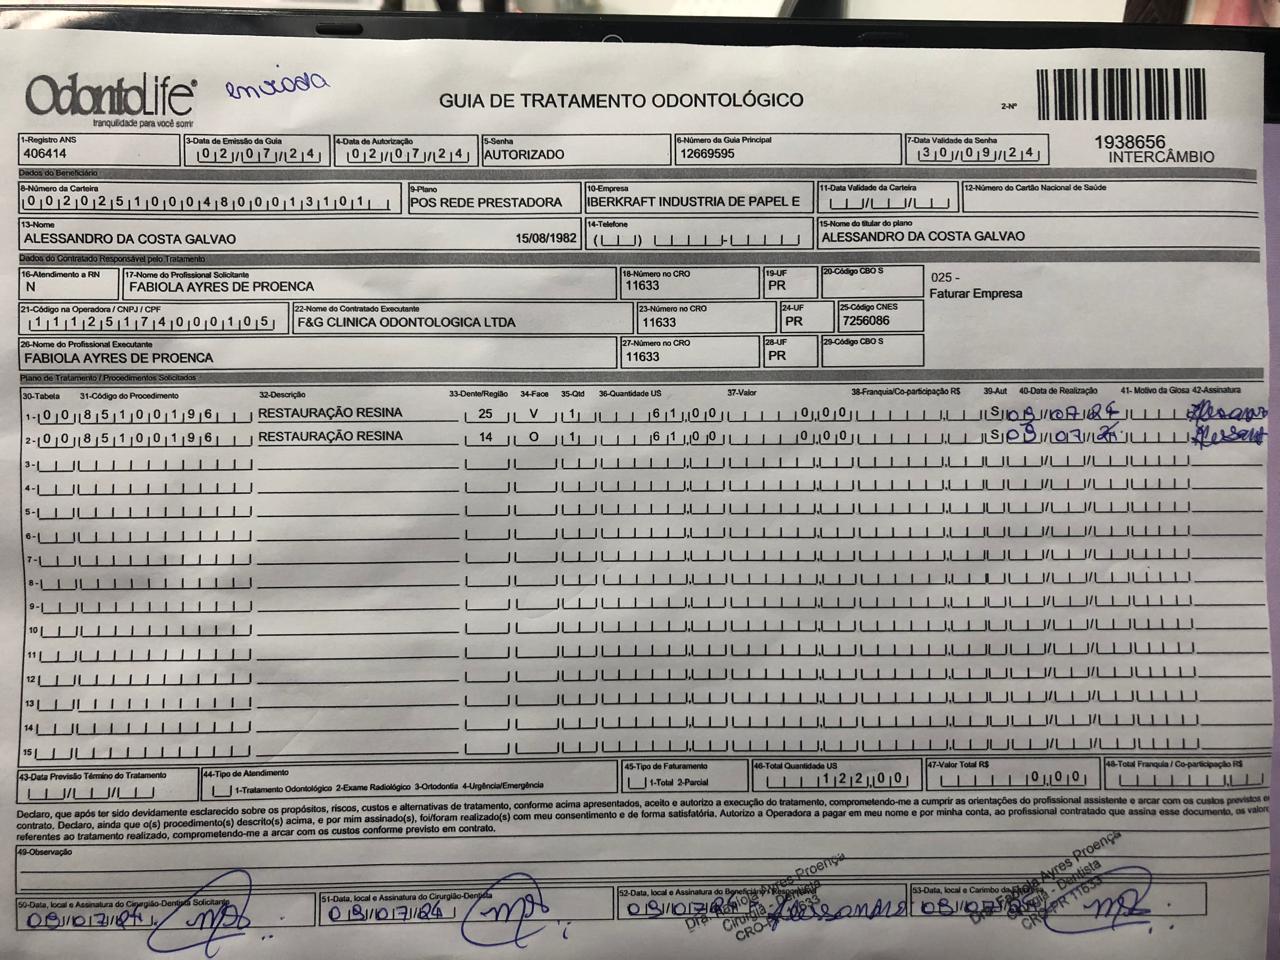 OdontoLife®
tranquilidade para você sorrir
enviada
GUIA DE TRATAMENTO ODONTOLÓGICO
2-Nº
1938656
INTERCÂMBIO
1-Registro ANS 3-Data de Emissão da Guia 4-Data de Autorização 5-Senha 6-Número da Guia Principal 7-Data Validade da Senha
406414 02/07/24 02/07/24 AUTORIZADO 12669595 30/09/24
Dados do Beneficiário
8-Número da Carteira 9-Plano 10-Empresa 11-Data Validade da Carteira 12-Número do Cartão Nacional de Saúde
00202510004800013101 POS REDE PRESTADORA IBERKRAFT INDUSTRIA DE PAPEL E
13-Nome 14-Telefone 15-Nome do titular do plano
ALESSANDRO DA COSTA GALVAO 15/08/1982 ALESSANDRO DA COSTA GALVAO
Dados do Contratado Responsável pelo Tratamento
16-Atendimento a RN 17-Nome do Profissional Solicitante 18-Número no CRO 19-UF 20-Código CBO S
N FABIOLA AYRES DE PROENCA 11633 PR
025 -
Faturar Empresa
21-Código na Operadora / CNPJ / CPF 22-Nome do Contratado Executante 23-Número no CRO 24-UF 25-Código CNES
11125174000105 F&G CLINICA ODONTOLOGICA LTDA 11633 PR 7256086
26-Nome do Profissional Executante 27-Número no CRO 28-UF 29-Código CBO S
FABIOLA AYRES DE PROENCA 11633 PR
Plano de Tratamento / Procedimentos Solicitados
30-Tabela 31-Código do Procedimento 32-Descrição 33-Dente/Região 34-Face 35-Qtd 36-Quantidade US 37-Valor 38-Franquia/Co-participação R$ 39-Aut 40-Data de Realização 41- Motivo da Glosa 42-Assinatura
1- 00 85100196 RESTAURAÇÃO RESINA 25 V 1 61,00 0,00 S 09/07/24
2- 00 85100196 RESTAURAÇÃO RESINA 14 O 1 61,00 0,00 S 09/07/24
3-
4-
5-
6-
7-
8-
9-
10
11
12
13
14
15
43-Data Previsão Término do Tratamento 44-Tipo de Atendimento 45-Tipo de Faturamento 46-Total Quantidade US 47-Valor Total R$ 48-Total Franquia / Co-participação R$
1-Tratamento Odontológico 2-Exame Radiológico 3-Ortodontia 4-Urgência/Emergência 1-Total 2-Parcial 122,00 0,00
Declaro, que após ter sido devidamente esclarecido sobre os propósitos, riscos, custos e alternativas de tratamento, conforme acima apresentados, aceito e autorizo a execução do tratamento, comprometendo-me a cumprir as orientações do profissional assistente e arcar com os custos previstos
contrato. Declaro, ainda que o(s) procedimento(s) descrito(s) acima, e por mim assinado(s), foi/foram realizado(s) com meu consentimento e de forma satisfatória. Autorizo a Operadora a pagar em meu nome e por minha conta, ao profissional contratado que assina esse documento, os
referentes ao tratamento realizado, comprometendo-me a arcar com os custos conforme previsto em contrato.
49-Observação
50-Data, local e Assinatura do Cirurgião-Dentista Solicitante 51-Data, local e Assinatura do Cirurgião-Dentista 52-Data, local e Assinatura do Beneficiário / Responsável 53-Data, local e Carimbo da
09/07/24 09/07/24 09/07/24 Alessandro 09/07/24
Dra. Fabiola Ayres Proença
Cirurgiã - Dentista
CRO-PR 11633
Dra. Fabiola Ayres Proença
Cirurgiã - Dentista
CRO-PR 11633